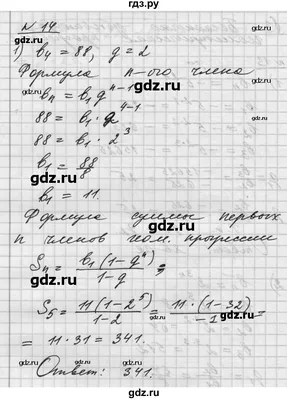 гдз.ру
№ 14
1) b₄ = 88, q = 2
Формула n-ого члена
bₙ = b₁qⁿ⁻¹
88 = b₁ · 2⁴⁻¹
88 = b₁ · 2³
b₁ = 88/8
b₁ = 11.
Формула суммы первых
n членов геом. прогрессии
Sₙ = b₁(1-qⁿ)/1-q ;
S₅ = 11(1-2⁵)/1-2 = 11·(1-32)/-1 =
= 11 · 31 = 341.
Ответ: 341.
gdz.ru